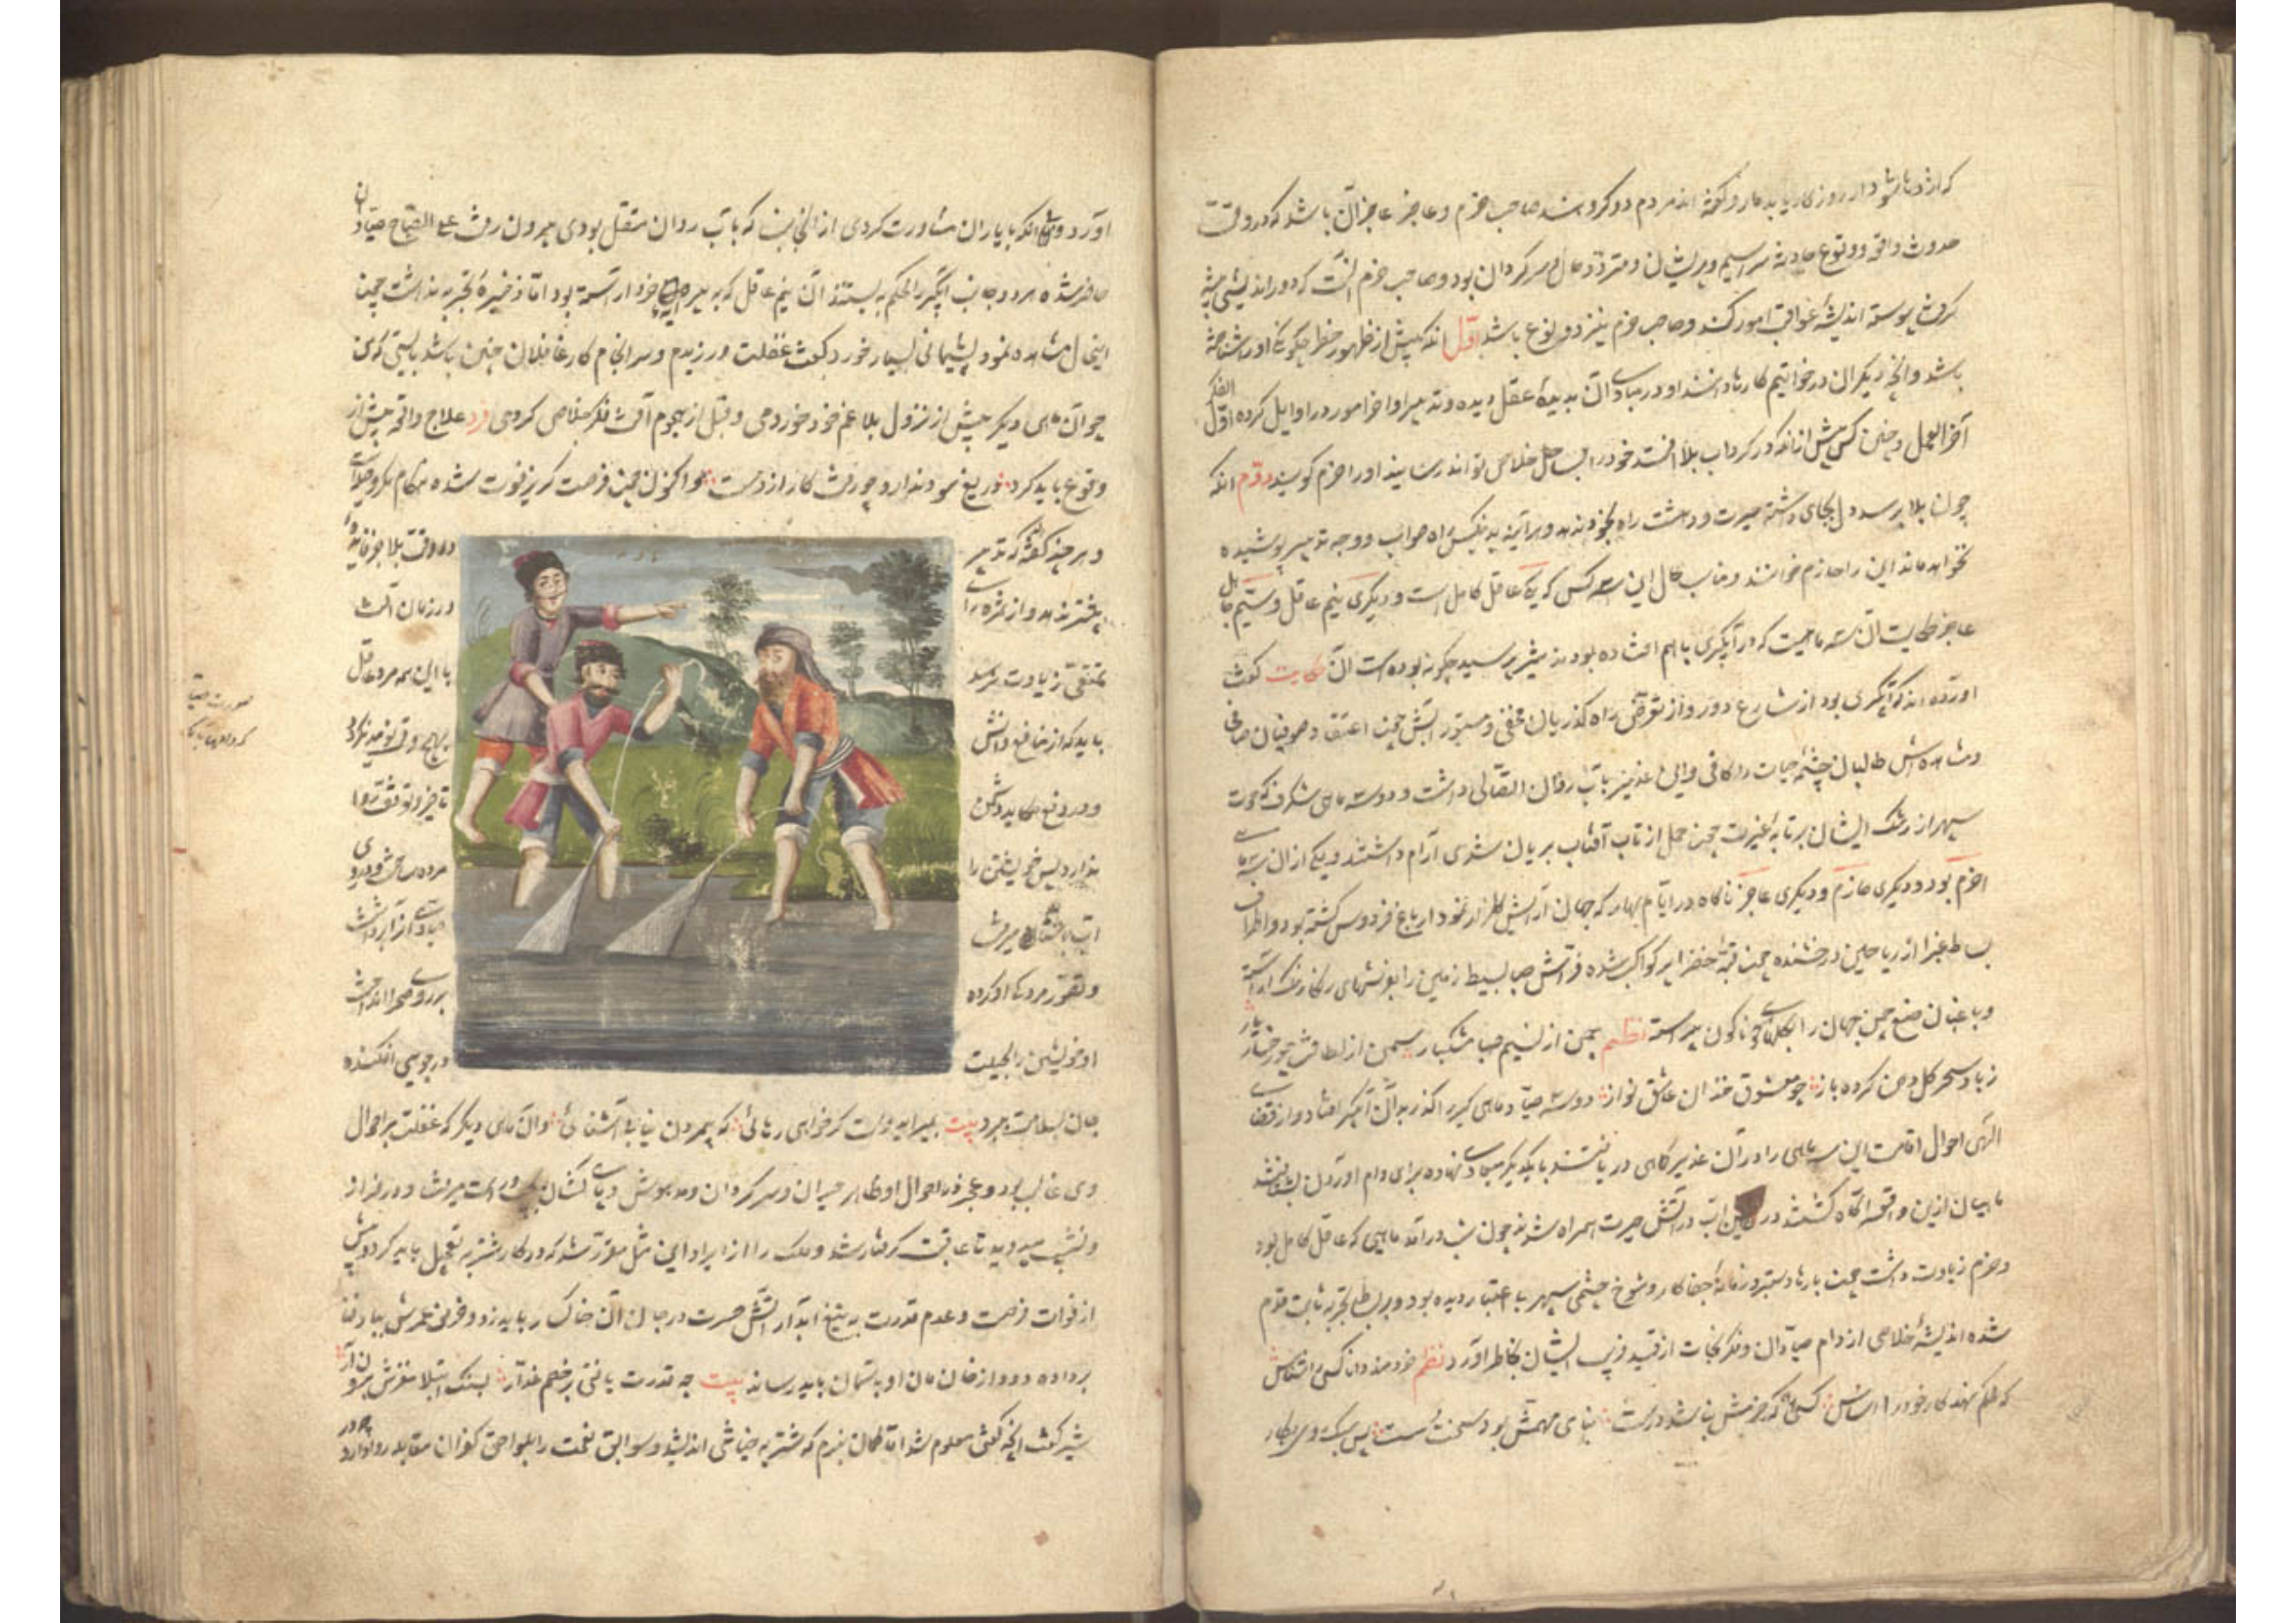 که از دها شود ار روزگار یابد مار و گفته اند مردم دو گروهند صاحب حزم و عاجز عاجز آن باشد که در وقت
حدوث واقعه و وقوع حادثه سراسیمه و پریشان و متردد حال و سرگردان بود و صاحب حزم آنست که دوراندیشی پیشه
کرده پیوسته اندیشهٔ عواقب امور کند و صاحب حزم نیز دو نوع باشد اول آنکه پیش از ظهور خطر چگونگی او را شناخته
باشد و آنچه دیگران در خواتیم کارها دانند او در مبادی آن بدیدهٔ عقل دیده و تدبیر اواخر امور در اوایل کرده اول الفکر
آخر العمل و چنین کس پیش از آنکه در گرداب بلا افتد خود را بساحل خلاصی تواند رسانید و او را احزم گویند دوم آنکه
چون بلا برسد دل بجای داشته حیرت و دهشت راه بخود ندهد و هر آینه بدینکس راه صواب و وجه تدبیر پوشیده
نخواهد ماند این را حازم خوانند و مناسب حال این سه کس که یکی عاقل کامل است و دیگری نیم عاقل و سیم جاهل
عاجز حکایت آن سه ماهیست که در آبگیری با هم افتاده بودند شیر پرسید چگونه بوده است آن حکایت گفت
آورده اند که آبگیری بود از شارع دور و از تعرض راه گذریان مخفی و مستور آبش چون اعتقاد صوفیان صافی
و مشاهده اش طالبان چشمهٔ حیات را کافی و این غدیر با آب روان اتصالی داشت و در وی سه ماهی شگرف که حوت
سپهر از رشک ایشان بر تابهٔ غیرت چون حمل از تاب آفتاب بریان شدی آرام داشتند و یکی از آن سه ماهی
احزم بود و دیگری حازم و دیگری عاجز ناگاه در ایام بهار که جهان از آرایش گلزار نمودار باغ فردوس گشته بود و اطراف
بساط غبرا از ریاحین درخشنده چون قبهٔ خضرا پر کواکب شده فراش صبا بسیط زمین را بفرشهای رنگارنگ آراسته
و باغبان صنع چمن جهان را بگلهای گوناگون پیراسته نظم چمن از نسیم صبا مشکبار سمن از لطافت چو رخسار یار
ز باد سحر گل دهن کرده باز چو معشوق خندان عاشق نواز دو سه صیاد ماهی گیر را گذر بدان آبگیر افتاد و از قضای
الهی احوال اقامت این سه ماهی را در آن غدیر کماهی دریافتند با یکدیگر میعادی نهاده برای دام آوردن بشتافتند
ماهیان ازین واقعه آگاه گشتند در عین آب در آتش حیرت همراه شدند چون شب درآمد ماهیی که عاقل کامل بود
و حزم زیادت داشت چون بارها دستبرد زمانهٔ جفاکار و شوخ چشمی سپهر بی اعتبار دیده بود و بر بساط تجربه ثابت قدم
شده اندیشهٔ خلاصی از دام صیادان و فکر نجات از قید فریب ایشان بخاطر آورد نظم خردمند دانا کسی را شناس
که محکم نهد کار خود را اساس کسی که حزمش نباشد درست بنای مهمش بود سخت سست پس سبک روی بکار
آورد و بی آنکه با یاران مشاورت کردی از آن جانب که با آب روان متصل بودی بیرون رفت علی الصباح صیادان
حاضر شده هر دو جانب آبگیر را محکم به بستند آن نیم عاقل که به پیرایهٔ خرد آراسته بود اما ذخیرهٔ تجربه نداشت چون
اینحال مشاهده نمود پشیمانی بسیار خورد گفت غفلت ورزیدم و سرانجام کار غافلان چنین باشد بایستی که من
چو آن ماهی دیگر پیش از نزول بلا غم خود خوردمی و قبل از هجوم آفت فکر خلاصی کردمی فرد علاج واقعه پیش از
وقوع باید کرد دریغ سود ندارد چو رفت کار از دست و اکنون چون فرصت گریز فوت شده هنگام مکر و حیله است
و هر چند گفته اند که تدبیر در وقت بلا فایده
بیشتر ندهد و از ثمرهٔ رای در زمان آفت
تمتعی زیادت نرسد با این همه مرد عاقل
باید که از منافع دانش بهیچ وقت نومید نگردد
و در دفع مکاید دشمن تاخیر و توقف روا
ندارد پس خویشتن را مرده ساخت و بر روی
آب میرفت صیادی آنرا برداشت
و تصور مردگی او کرده بر روی صحرا انداخت
او خویشتن را بحیلت در جویی افکنده
جان بسلامت ببرد بیت بمیر ای دوست گر خواهی رهائی که بیمردن نیابی آشنائی و آن ماهی دیگر که غفلت بر احوال
وی غالب بود و عجز در احوال او ظاهر حیران و سرگردان و مدهوش و پای کشان چپ و راست میرفت و در فراز
و نشیب میدوید تا عاقبت گرفتار شد و ملک را از ایراد این مثل مقرر شد که در کار شتربه تعجیل باید کرد و پیش
از فوات فرصت و عدم قدرت به تیغ آبدار آتش حسرت در جان آن خاکسار باید زد و خرمن عمرش بباد فنا
برداده دود از خان مان او به آسمان باید رساند بیت چو قدرت یافتی بر خصم غدار بسنگ ابتلا مغزش برون آر
شیر گفت آنچه گفتی معلوم شد اما گمان نبرم که شتربه خیانتی اندیشد و سوابق نعمت را بلواحق کفران مقابله روا دارد چه در